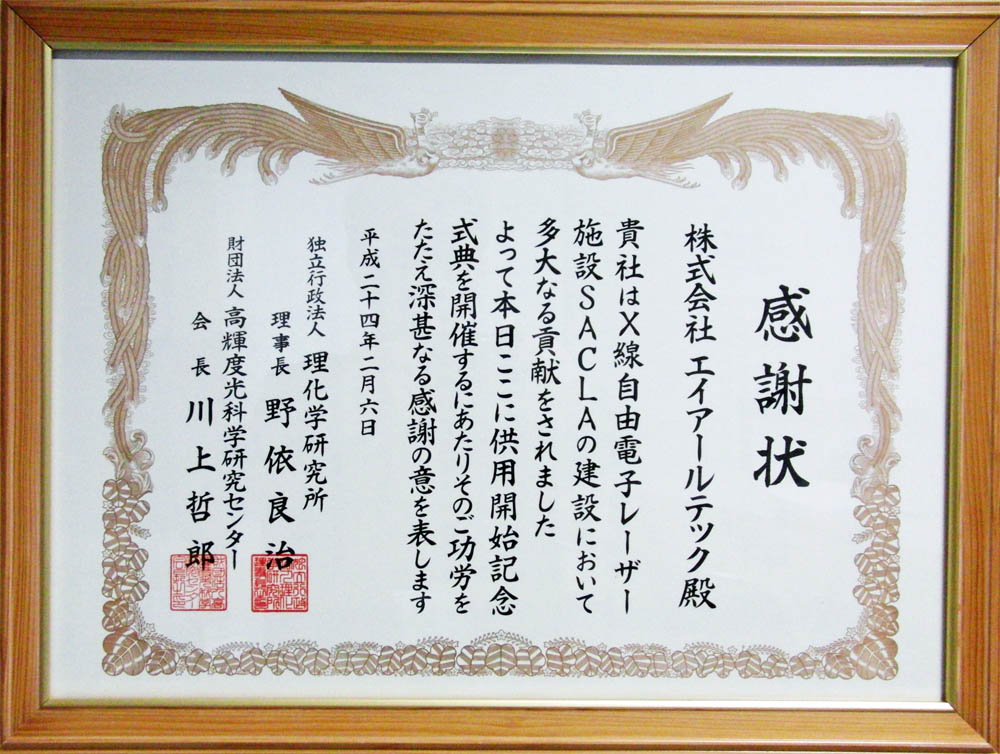 感謝状
株式会社 エイアールテック殿
貴社はX線自由電子レーザー
施設SACLAの建設において
多大なる貢献をされました
よって本日ここに供用開始記念
式典を開催するにあたりそのご功労を
たたえ深甚なる感謝の意を表します
平成二十四年二月六日
独立行政法人 理化学研究所
理事長 野依良治
財団法人 高輝度光科学研究センター
会長 川上哲郎